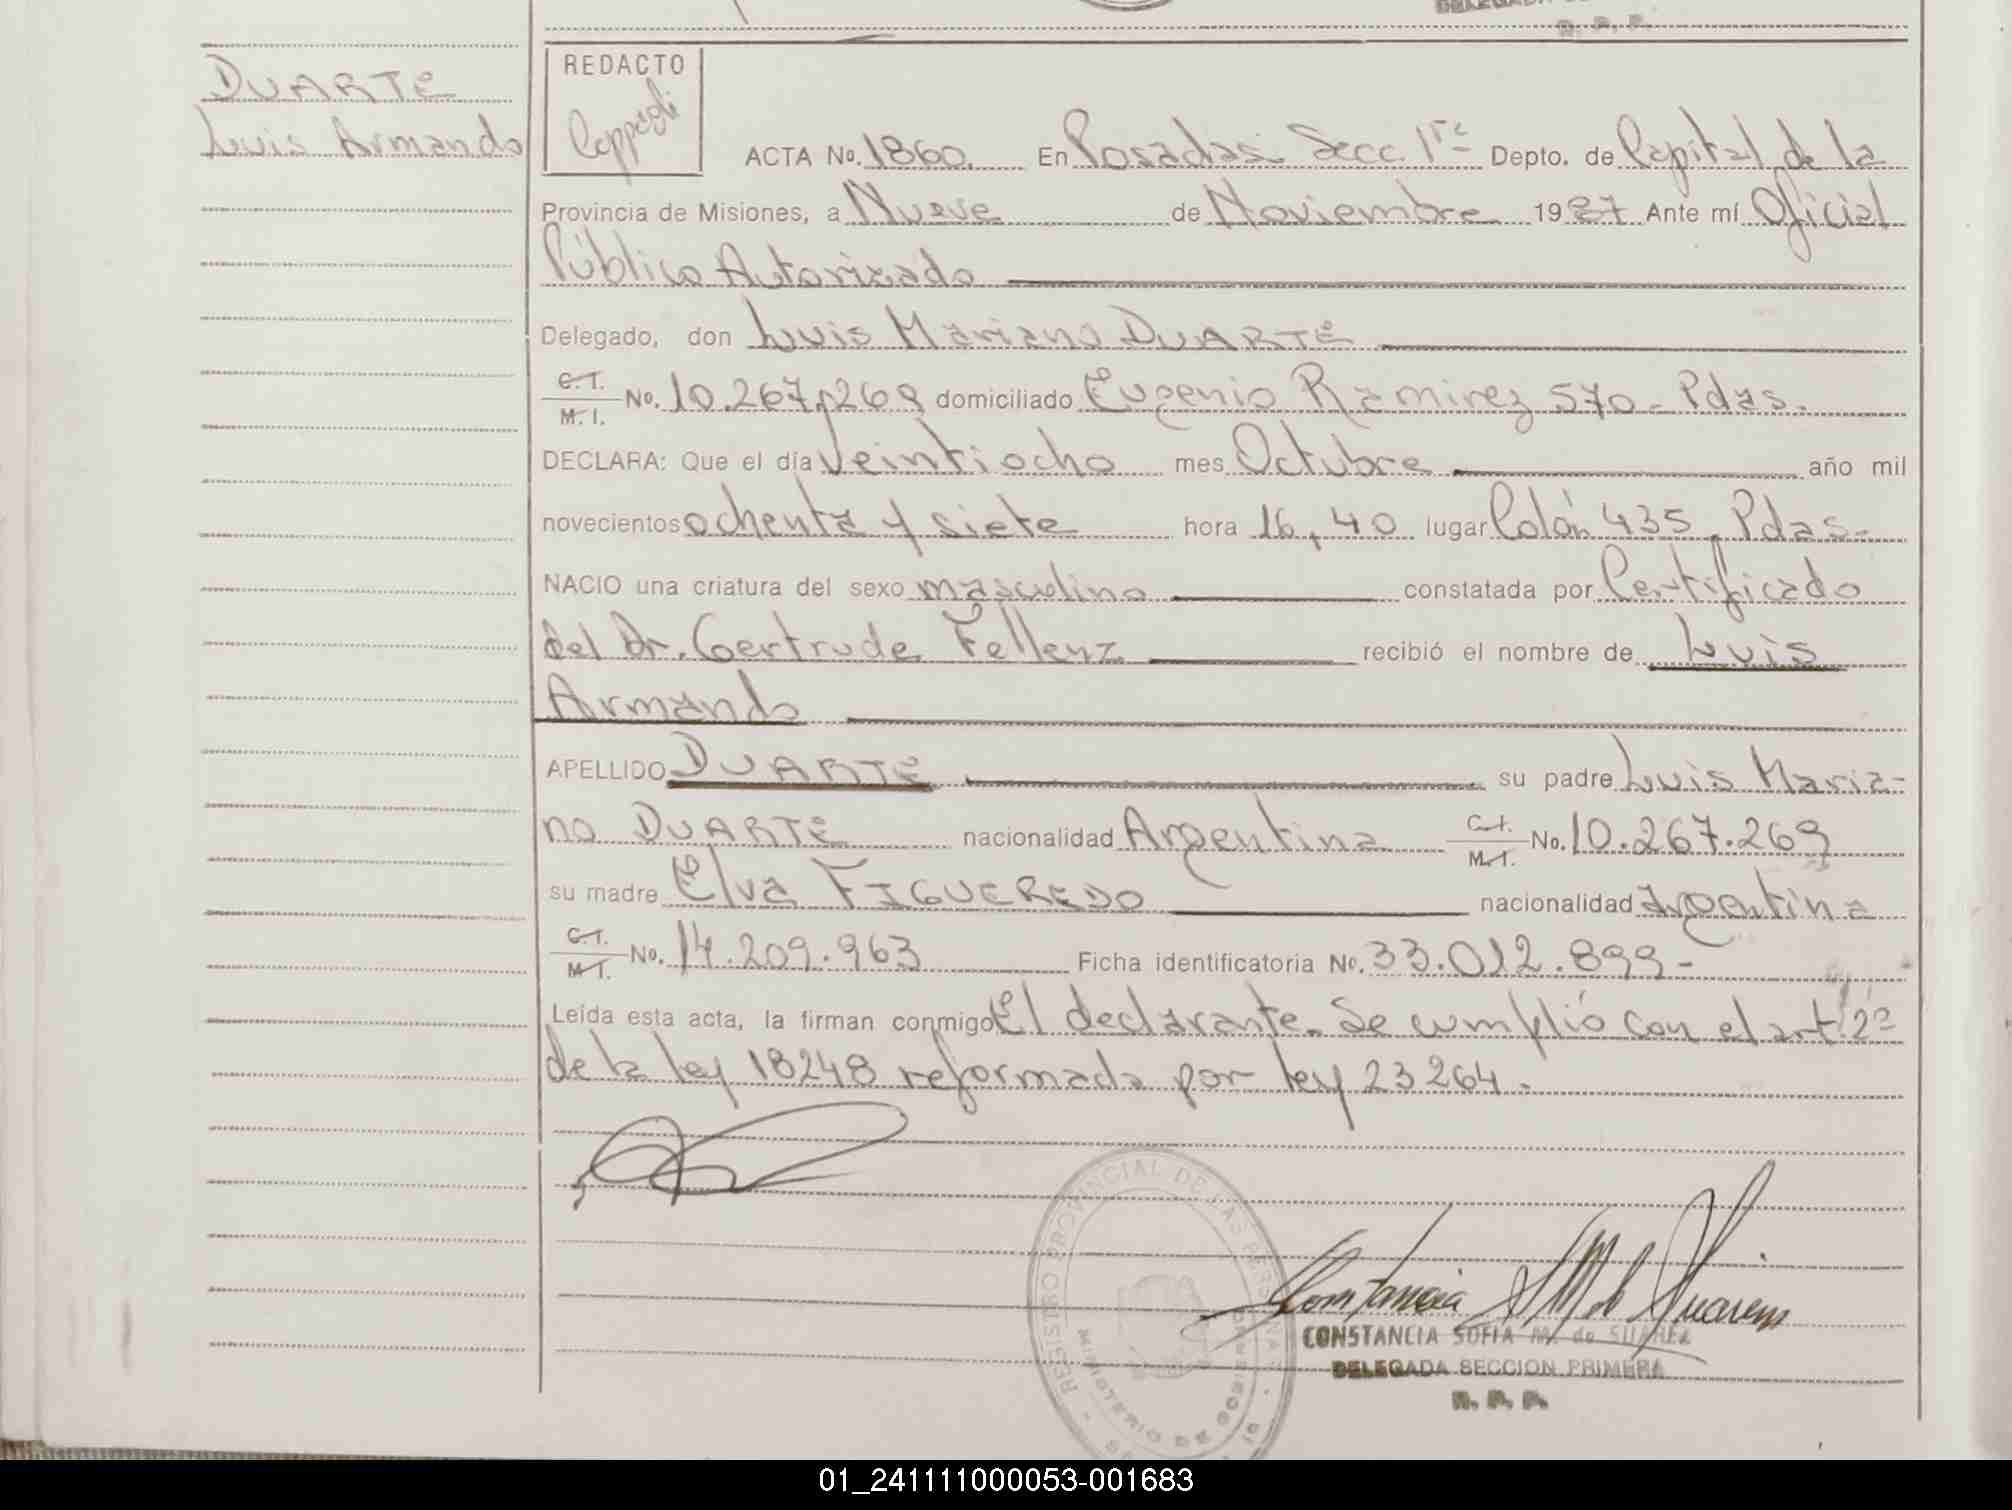 DELEGADA
R. P. P.
DUARTE
Luis Armando
REDACTO
ACTA No. 1860. En Posadas Secc. 1ra Depto. de Capital de la
Provincia de Misiones, a Nueve de Noviembre 1987 Ante mí Oficial
Público Autorizado
Delegado, don Luis Mariano DUARTE
C.I.
M.I. No. 10.267.269 domiciliado Eugenio Ramirez 570 - Pdas.
DECLARA: Que el día Veintiocho mes Octubre año mil
novecientos ochenta y siete hora 16,40 lugar Colón 435, Pdas-
NACIO una criatura del sexo masculino constatada por Certificado
del Dr. Gertrude Fellenz recibió el nombre de Luis
Armando
APELLIDO DUARTE su padre Luis Maria-
no DUARTE nacionalidad Argentina C.I.
M.I. No. 10.267.269
su madre Elva FIGUEREDO nacionalidad Argentina
C.I.
M.I. No. 14.209.963 Ficha identificatoria No. 33.012.899-
Leída esta acta, la firman conmigo El declarante. Se cumplió con el art 2º
de la ley 18248 reformada por ley 23264.
REGISTRO PROVINCIAL DE LAS PERSONAS
MINISTERIO DE
Constancia S M de Suarez
CONSTANCIA SOFIA M. de SUAREZ
DELEGADA SECCION PRIMERA
R. P. P.
01_241111000053-001683